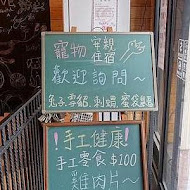 寵物
安親
住宿
歡迎詢問~
兔子.雲貂.刺蝟.蜜袋鼯
!手工健康!
手工零食$100
雞肉片~